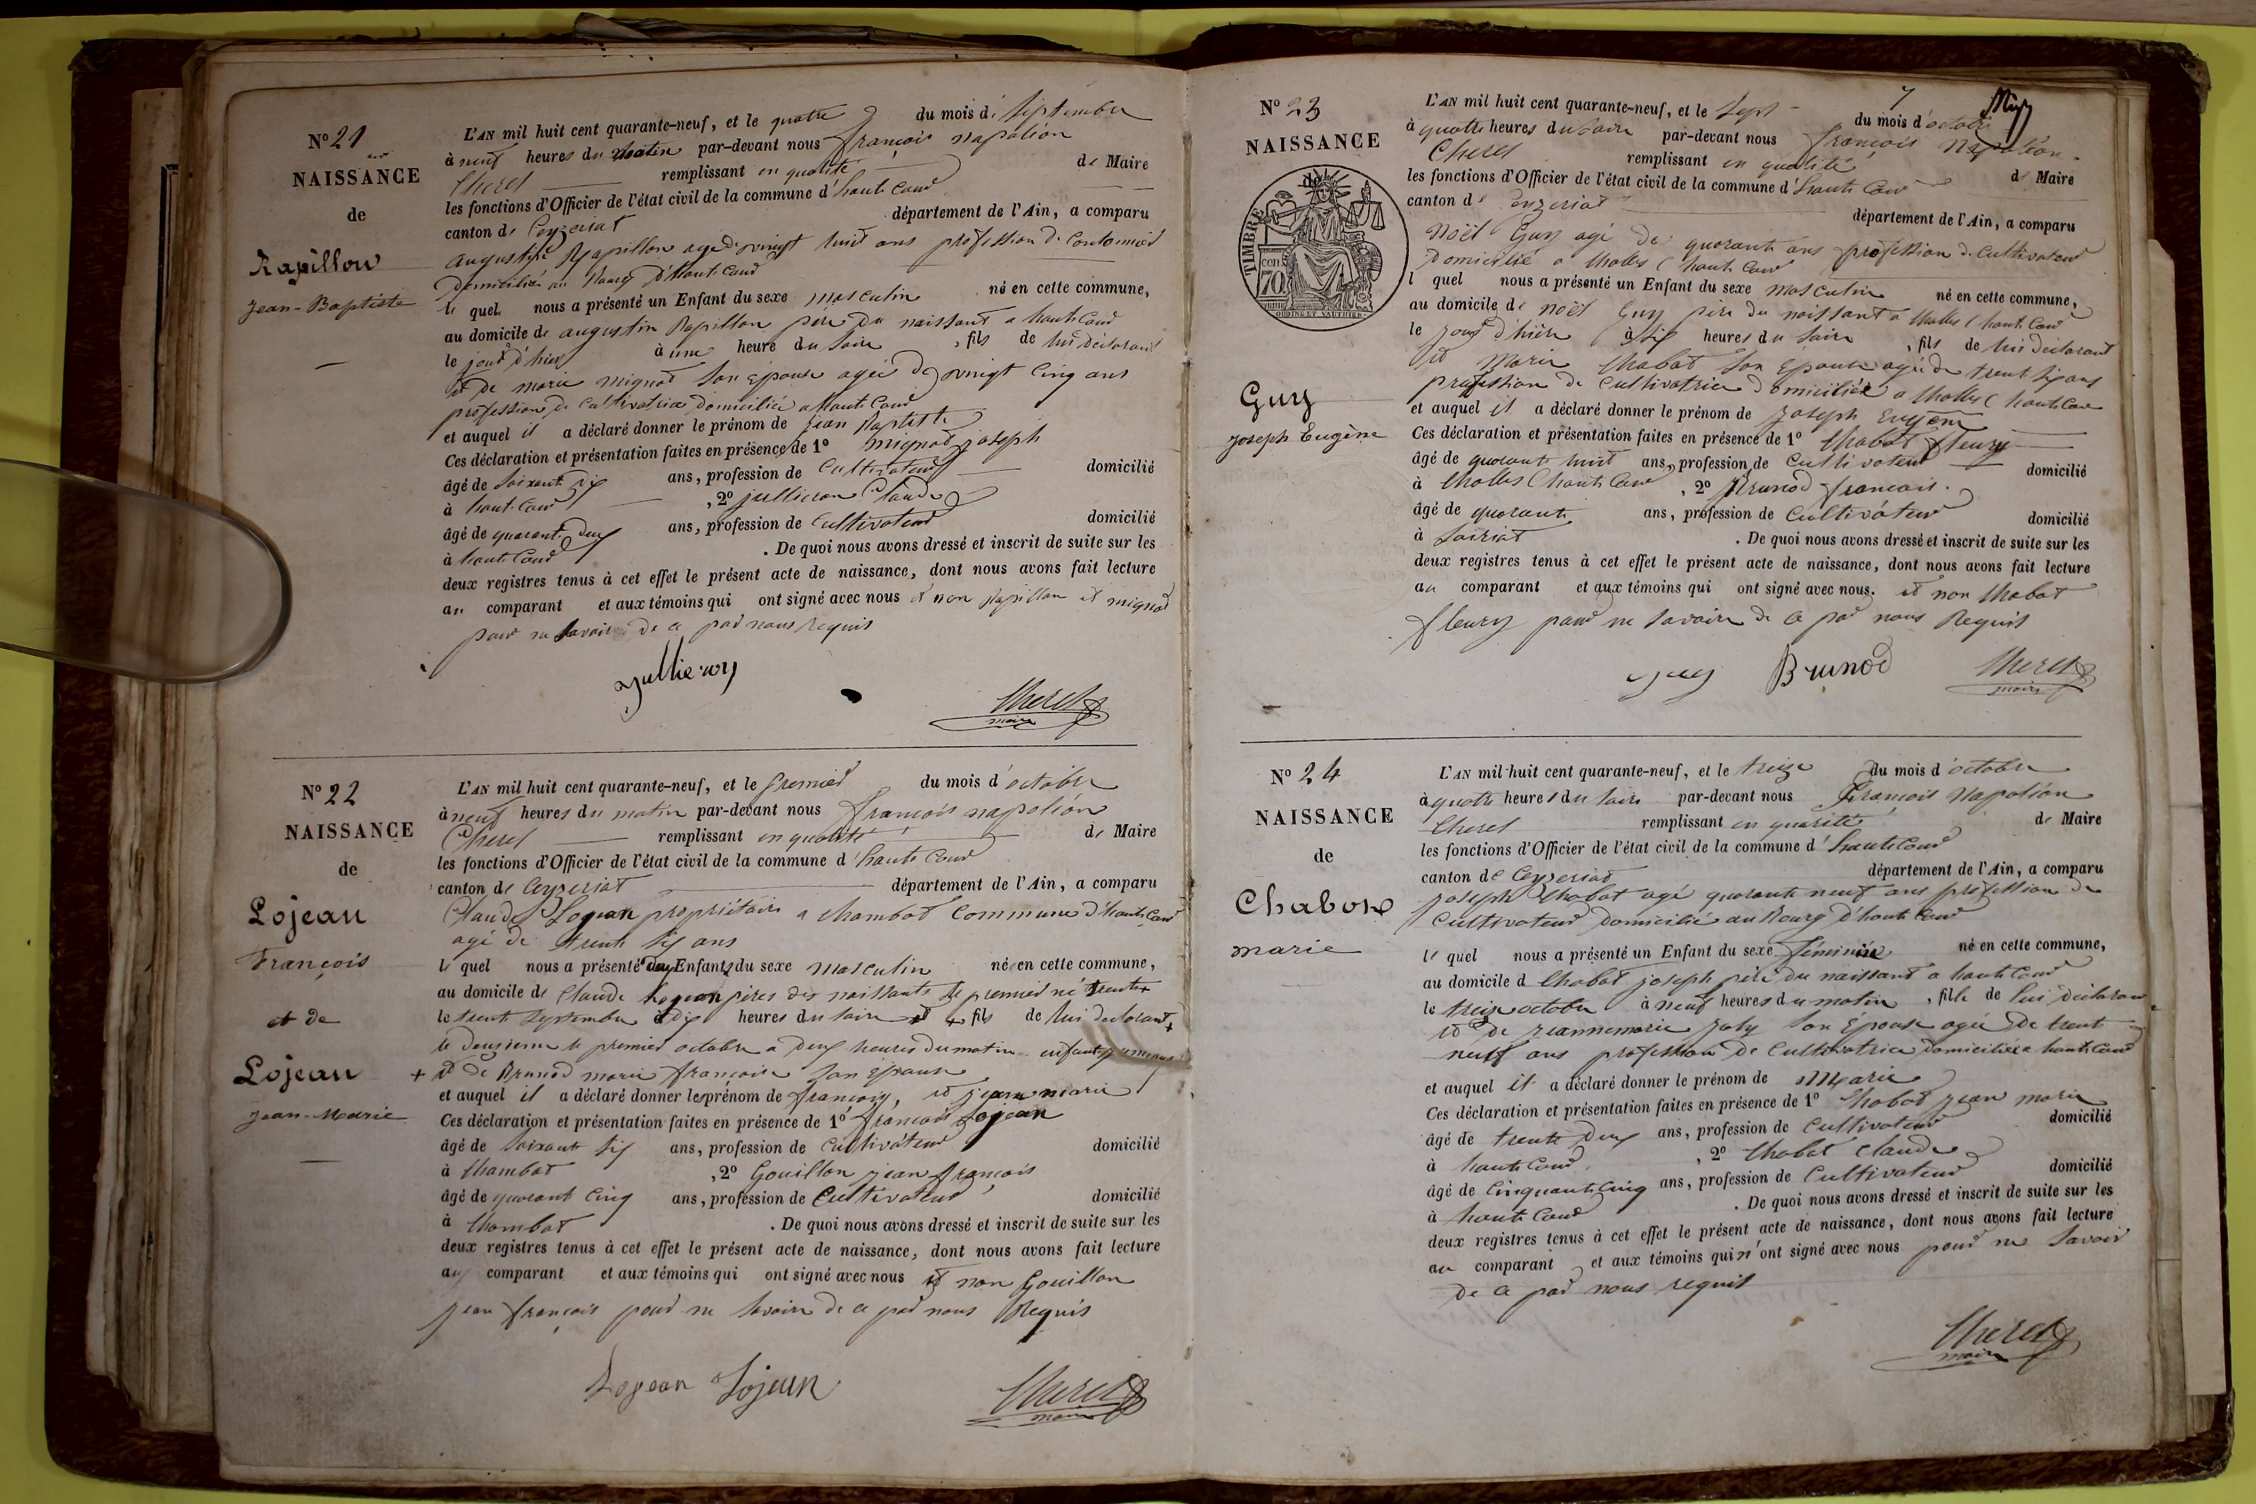 N° 21
NAISSANCE
de
Rapillon
Jean-Baptiste
L'AN mil huit cent quarante-neuf, et le quatre du mois de Septembre
à neuf heures du matin par-devant nous françois napoléon
Cherel remplissant en qualité de Maire
les fonctions d'Officier de l'état civil de la commune d'hautecour
canton de Ceyzeriat département de l'Ain, a comparu
augustin Rapillon agé de vingt huit ans profession de
domicilié au bourg d'hautecour
le quel nous a présenté un Enfant du sexe masculin né en cette commune,
au domicile de augustin Rapillon père du naissant a hautecour
le jour d'hier à une heure du soir, fils de lui déclarant
et de marie mignot son epouse agée de vingt cinq ans
profession de cultivatrice domiciliée a hautecour
et auquel il a déclaré donner le prénom de jean baptiste
Ces déclaration et présentation faites en présence de 1° mignot joseph
âgé de soixant six ans, profession de cultivateur domicilié
à hautecour, 2° jullieron Claude
âgé de quarante deux ans, profession de cultivateur domicilié
à hautecour. De quoi nous avons dressé et inscrit de suite sur les
deux registres tenus à cet effet le présent acte de naissance, dont nous avons fait lecture
au comparant et aux témoins qui ont signé avec nous et non Rapillon et mignot
pour ne savoir de ce par nous Requis
jullieron
Cherel
maire
N° 22
NAISSANCE
de
Lojean
François
et de
Lojean
Jean-Marie
L'AN mil huit cent quarante-neuf, et le premier du mois d'octobre
à neuf heures du matin par-devant nous françois napoléon
Cherel remplissant en qualité de Maire
les fonctions d'Officier de l'état civil de la commune d'hautecour
canton de Ceyzeriat département de l'Ain, a comparu
Claude Lojean propriétaire a Chambot commune d'hautecour
agé de trente six ans
le quel nous a présenté deux Enfants du sexe masculin né en cette commune,
au domicile de Claude Lojean pères des naissants le premier né trente +
le trente septembre à dix heures du soir et + fils de lui declarant +
le deuxieme le premier octobre a deux heures du matin enfants jumeaux
+ et de Brunod marie françoise son épouse
et auquel il a déclaré donner les prénom de françois, et jean marie
Ces déclaration et présentation faites en présence de 1° françois Lojean
âgé de soixant six ans, profession de cultivateur domicilié
à Chambot, 2° Gouillon jean françois
âgé de quarant cinq ans, profession de cultivateur domicilié
à Chambot. De quoi nous avons dressé et inscrit de suite sur les
deux registres tenus à cet effet le présent acte de naissance, dont nous avons fait lecture
aux comparant et aux témoins qui ont signé avec nous et non Gouillon
jean françois pour ne savoir de ce par nous Requis
Lojean Lojean
Cherel
maire
N° 23
NAISSANCE
de
TIMBRE
cen
70
Guy
Joseph Eugène
L'AN mil huit cent quarante-neuf, et le sept 7 du mois d'octobre
à quatre heures du soir par-devant nous françois Napoléon
Cherel remplissant en qualité de Maire
les fonctions d'Officier de l'état civil de la commune d'hautecour
canton de Ceyzeriat département de l'Ain, a comparu
Noël Guy agé de quarante ans profession de cultivateur
domicilié a Challes hautecour
l quel nous a présenté un Enfant du sexe masculin né en cette commune,
au domicile de noël Guy père du naissant a Challes hautecour
le jour d'hière à six heures du soir, fils de lui déclarant
et Marie Chabot son epouse agée de trent six ans
profession de cultivatrice domiciliée a Challes hautecour
et auquel il a déclaré donner le prénom de joseph Eugène
Ces déclaration et présentation faites en présence de 1° Chabot fleury
âgé de quarant huit ans, profession de cultivateur domicilié
à Challes hautecour, 2° Brunod francois
âgé de quarante ans, profession de cultivateur domicilié
à . De quoi nous avons dressé et inscrit de suite sur les
deux registres tenus à cet effet le présent acte de naissance, dont nous avons fait lecture
au comparant et aux témoins qui ont signé avec nous. et non Chabot
fleury pour ne savoir de ce par nous Requis
guy Brunod Cherel
maire
N° 24
NAISSANCE
de
Chabot
marie
L'AN mil huit cent quarante-neuf, et le treize du mois d'octobre
à quatre heures du soire par-devant nous François Napoléon
Cherel remplissant en qualité de Maire
les fonctions d'Officier de l'état civil de la commune d'hautecour
canton de Ceyzeriat département de l'Ain, a comparu
joseph Chabot agé quarante neuf ans profession de
cultivateur domicilié au bourg d'hautecour
le quel nous a présenté un Enfant du sexe féminine né en cette commune,
au domicile d Chabot joseph père du naissant a hautecour
le treize octobre à neuf heures du matin, fille de lui déclarant
et de jeannemarie july son épouse agée de trent
neuf ans profession de cultivatrice domiciliée a hautecour
et auquel il a déclaré donner le prénom de Marie
Ces déclaration et présentation faites en présence de 1° Chabot jean marie
âgé de trente deux ans, profession de cultivateur domicilié
à hautecour, 2° Chabot claude
âgé de cinquante cinq ans, profession de cultivateur domicilié
à hautecour. De quoi nous avons dressé et inscrit de suite sur les
deux registres tenus à cet effet le présent acte de naissance, dont nous avons fait lecture
au comparant et aux témoins qui n'ont signé avec nous pour ne savoir
de ce par nous requit
Cherel
maire